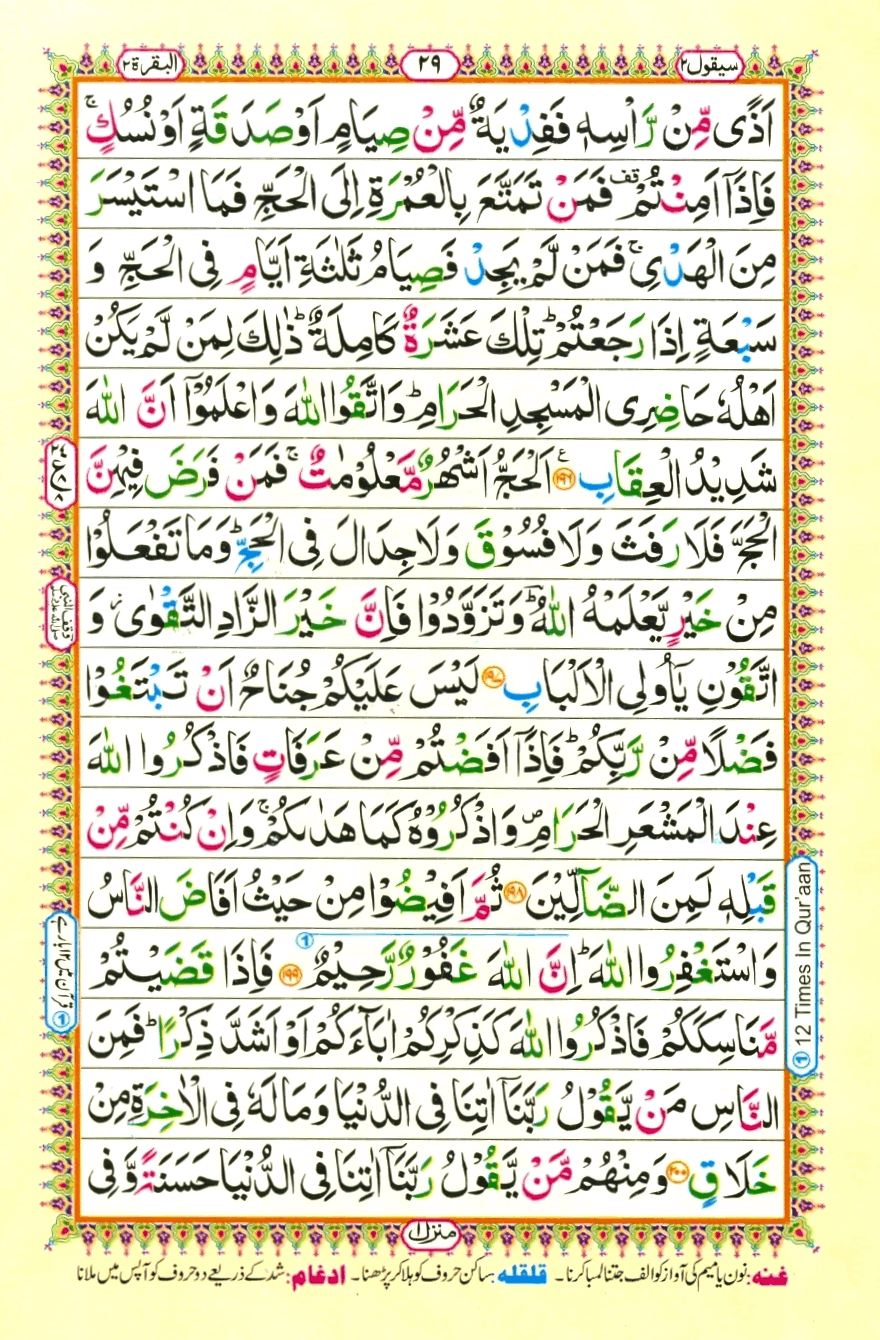 سيقول ٢
٢٩
البقرة ٢
اَذًى مِّنْ رَّاْسِهٖ فَفِدْيَةٌ مِّنْ صِيَامٍ اَوْ صَدَقَةٍ اَوْ نُسُكٍ ۚ
فَاِذَاۤ اَمِنْتُمْ ٙ فَمَنْ تَمَتَّعَ بِالْعُمْرَةِ اِلَى الْحَجِّ فَمَا اسْتَيْسَرَ
مِنَ الْهَدْىِ ۚ فَمَنْ لَّمْ يَجِدْ فَصِيَامُ ثَلٰثَةِ اَيَّامٍ فِى الْحَجِّ وَ
سَبْعَةٍ اِذَا رَجَعْتُمْ ؕ تِلْكَ عَشَرَةٌ كَامِلَةٌ ؕ ذٰلِكَ لِمَنْ لَّمْ يَكُنْ
اَهْلُهٗ حَاضِرِى الْمَسْجِدِ الْحَرَامِ ؕ وَاتَّقُوا اللّٰهَ وَاعْلَمُوْۤا اَنَّ اللّٰهَ
شَدِيْدُ الْعِقَابِ ﴿۱۹۶﴾ اَلْحَجُّ اَشْهُرٌ مَّعْلُوْمٰتٌ ۚ فَمَنْ فَرَضَ فِيْهِنَّ
الْحَجَّ فَلَا رَفَثَ وَلَا فُسُوْقَ وَلَا جِدَالَ فِى الْحَجِّ ؕ وَمَا تَفْعَلُوْا
مِنْ خَيْرٍ يَّعْلَمْهُ اللّٰهُ ؕ وَتَزَوَّدُوْا فَاِنَّ خَيْرَ الزَّادِ التَّقْوٰى ۫ وَ
اتَّقُوْنِ يٰۤاُولِى الْاَلْبَابِ ﴿۱۹۷﴾ لَيْسَ عَلَيْكُمْ جُنَاحٌ اَنْ تَبْتَغُوْا
فَضْلًا مِّنْ رَّبِّكُمْ ؕ فَاِذَاۤ اَفَضْتُمْ مِّنْ عَرَفَاتٍ فَاذْكُرُوا اللّٰهَ
عِنْدَ الْمَشْعَرِ الْحَرَامِ ۪ وَاذْكُرُوْهُ كَمَا هَدٰىكُمْ ۚ وَاِنْ كُنْتُمْ مِّنْ
قَبْلِهٖ لَمِنَ الضَّآلِّيْنَ ﴿۱۹۸﴾ ثُمَّ اَفِيْضُوْا مِنْ حَيْثُ اَفَاضَ النَّاسُ
وَاسْتَغْفِرُوا اللّٰهَ ؕ اِنَّ اللّٰهَ غَفُوْرٌ رَّحِيْمٌ ① ﴿۱۹۹﴾ فَاِذَا قَضَيْتُمْ
مَّنَاسِكَكُمْ فَاذْكُرُوا اللّٰهَ كَذِكْرِكُمْ اٰبَآءَكُمْ اَوْ اَشَدَّ ذِكْرًا ؕ فَمِنَ
النَّاسِ مَنْ يَّقُوْلُ رَبَّنَاۤ اٰتِنَا فِى الدُّنْيَا وَمَا لَهٗ فِى الْاٰخِرَةِ مِنْ
خَلَاقٍ ﴿۲۰۰﴾ وَمِنْهُمْ مَّنْ يَّقُوْلُ رَبَّنَاۤ اٰتِنَا فِى الدُّنْيَا حَسَنَةً وَّفِى
وقف النبی صلی اللہ علیہ وسلم
① قرآن میں ۱۲ بار ہے
① 12 Times In Qur'aan
منزل ۱
غنه: نون یا میم کی آواز کو الف جتنا لمبا کرنا ۔ قلقله: ساکن حروف کو ہلا کر پڑھنا ۔ ادغام: شد کے ذریعے دو حروف کو آپس میں ملانا